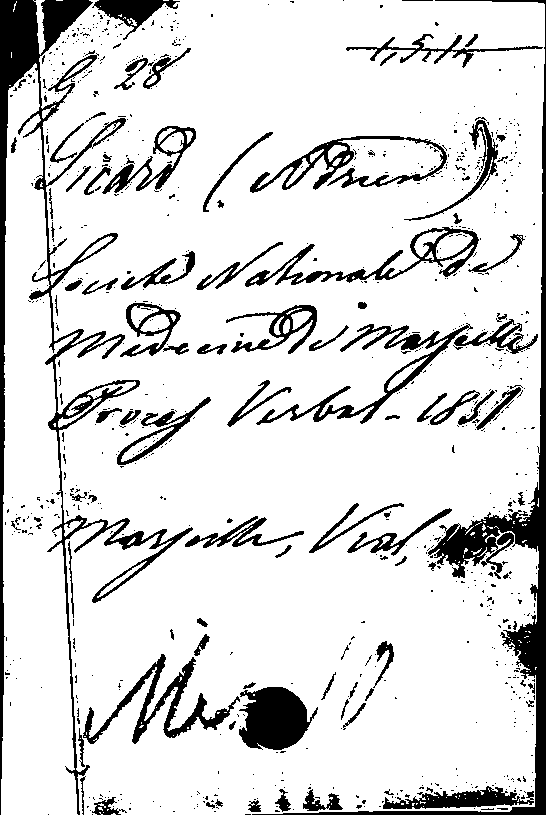 G. 28
1,5,14
Sicard (Adrien)
Société Nationale de
Médecine de Marseille
Procès Verbal - 1851
Marseille, Vial,